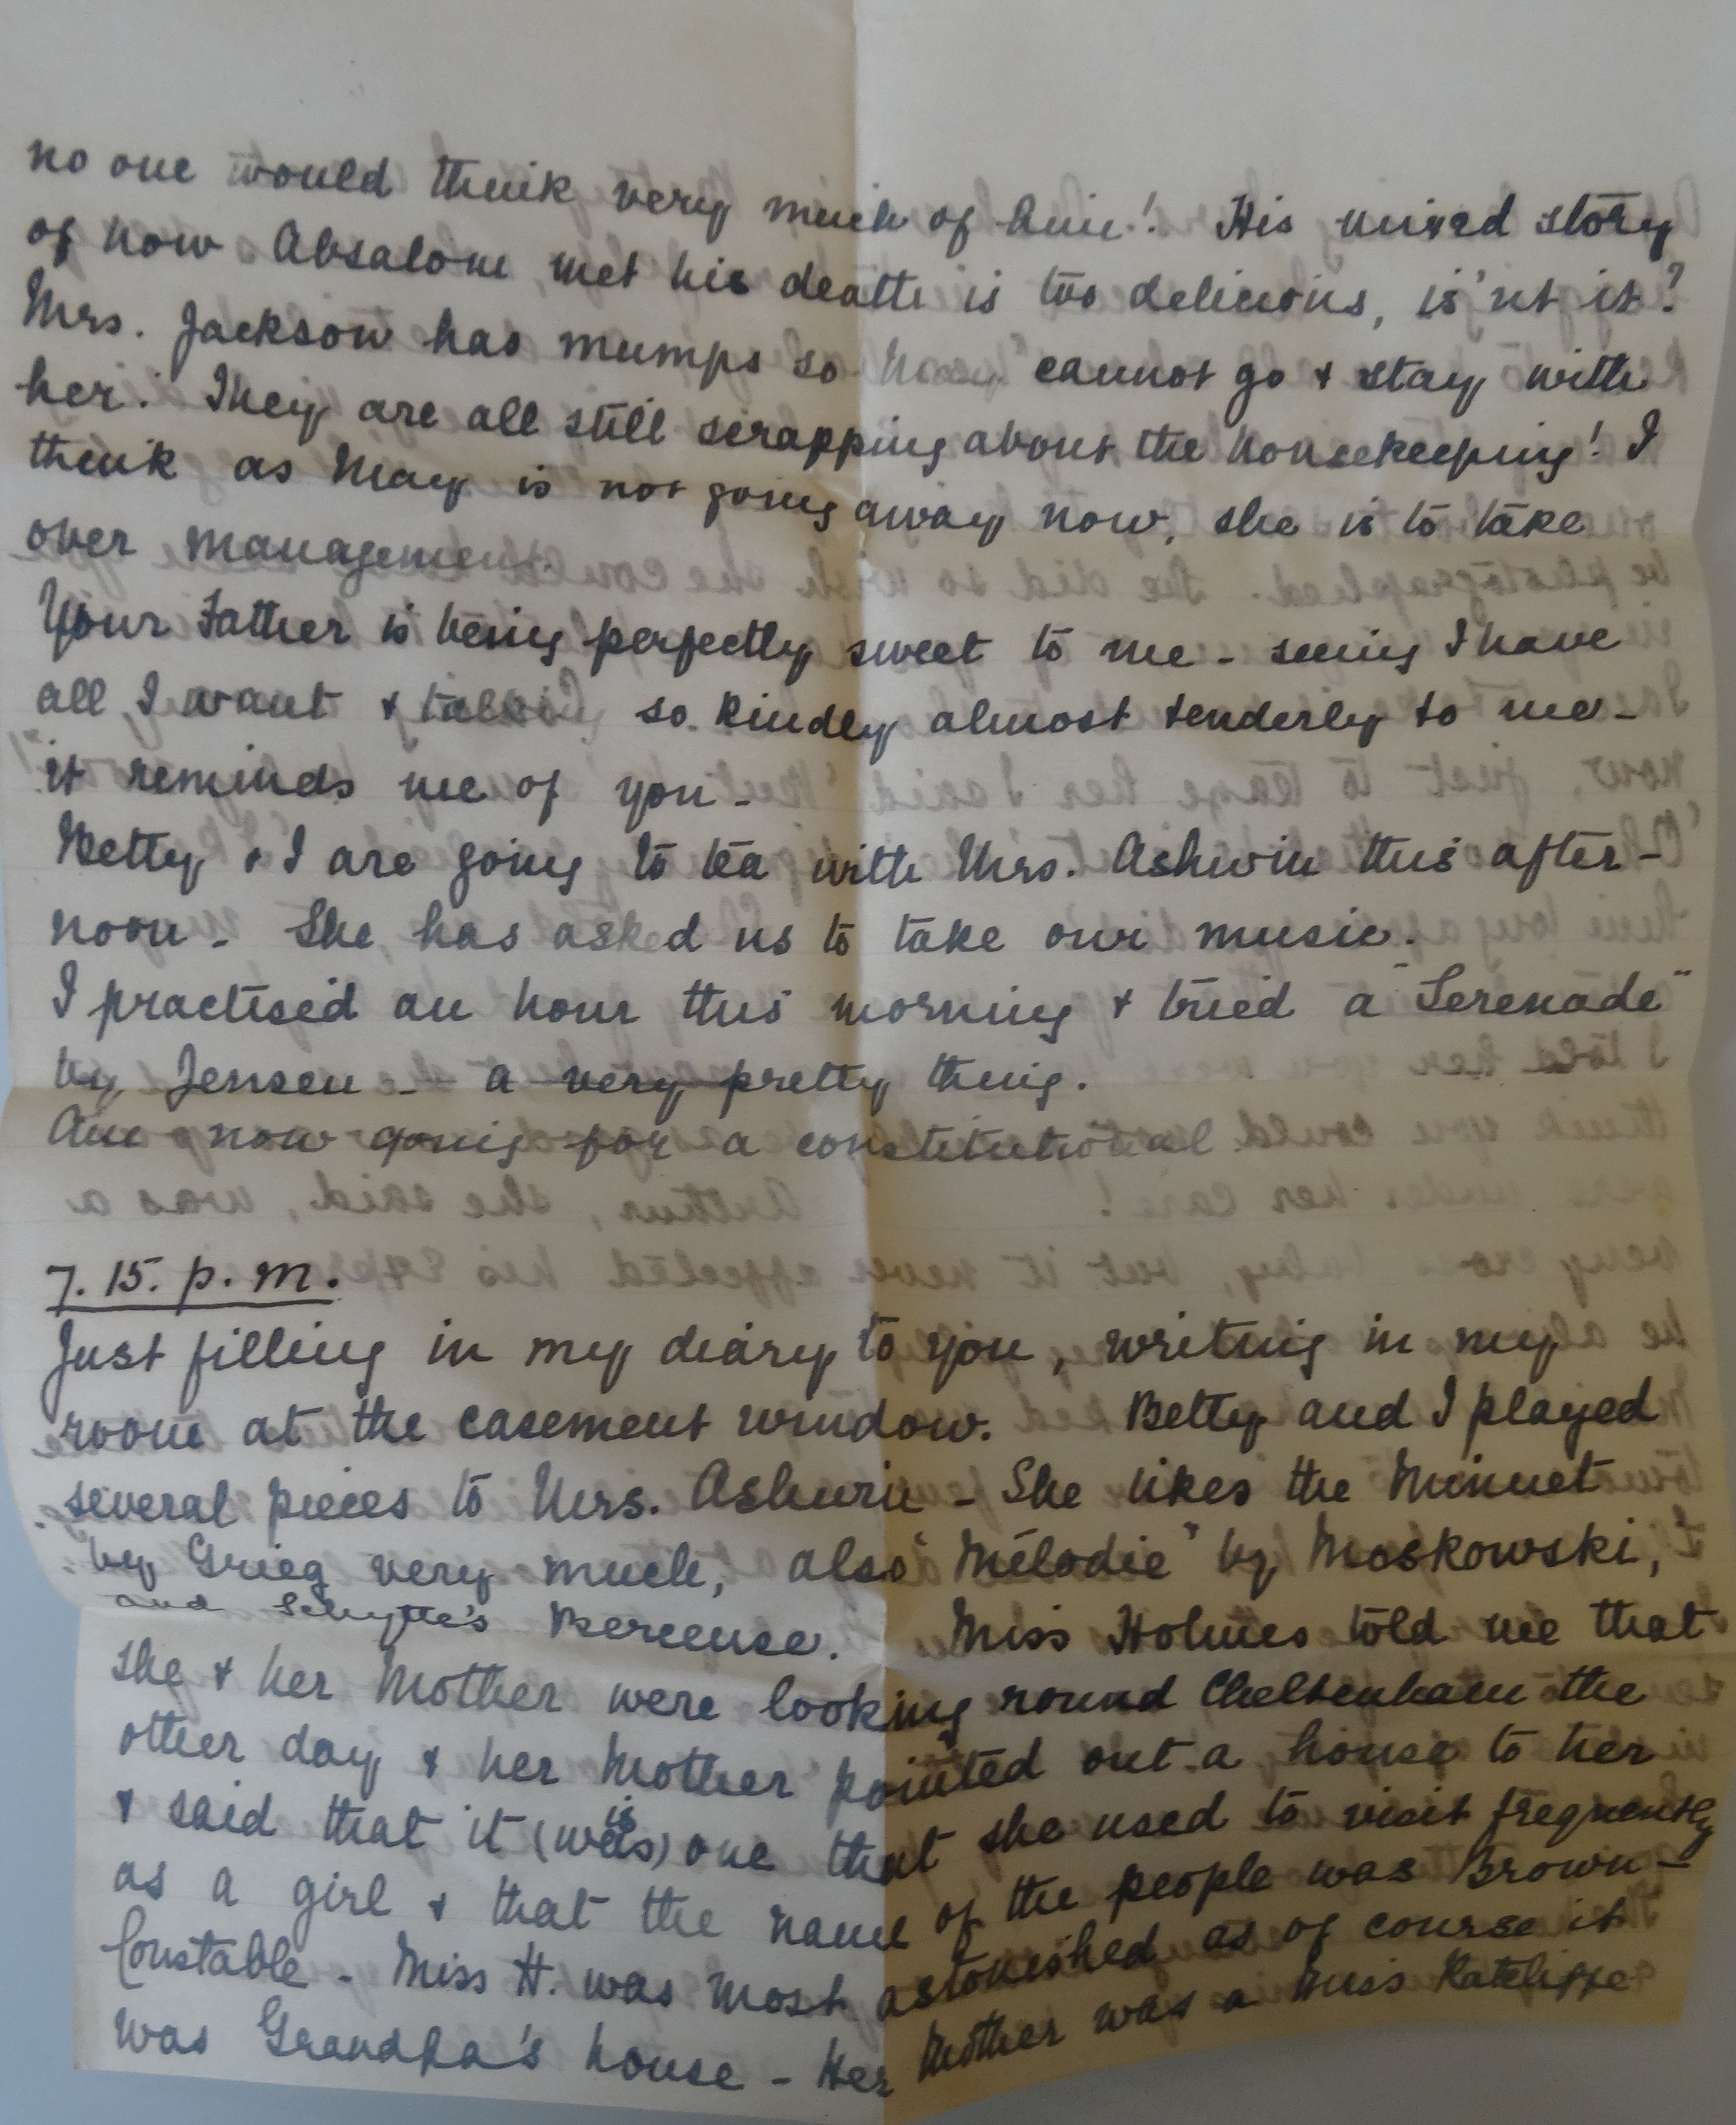 no one would think very much of him! His mixed story
of how Absalom met his death is too delicious, is'nt it?
Mrs. Jackson has mumps so May cannot go & stay with
her. They are all still scrapping about the housekeeping! I
think as May is not going away now, she is to take
over management.
Your Father is being perfectly sweet to me - seeing I have
all I want & talking so kindly almost tenderly to me -
it reminds me of you -
Betty & I are going to tea with Mrs. Ashwin this after-
noon - She has asked us to take our music.
I practised an hour this morning & tried a "Serenade"
by Jensen - a very pretty thing.
Am now going for a constitutional
7. 15. p. m.
Just filling in my diary to you, writing in my
room at the casement window. Betty and I played
several pieces to Mrs. Ashwin - She likes the Minuet
by Grieg very much, also "Mélodie" by Moskowski,
and Schytte's Berceuse. Miss Holmes told me that
she & her Mother were looking round Cheltenham the
other day & her Mother pointed out a house to her
& said that it (was) is one that she used to visit frequently
as a girl & that the name of the people was Brown-
Constable - Miss H. was most astonished as of course it
was Grandpa's house - Her Mother was a Miss Ratcliffe